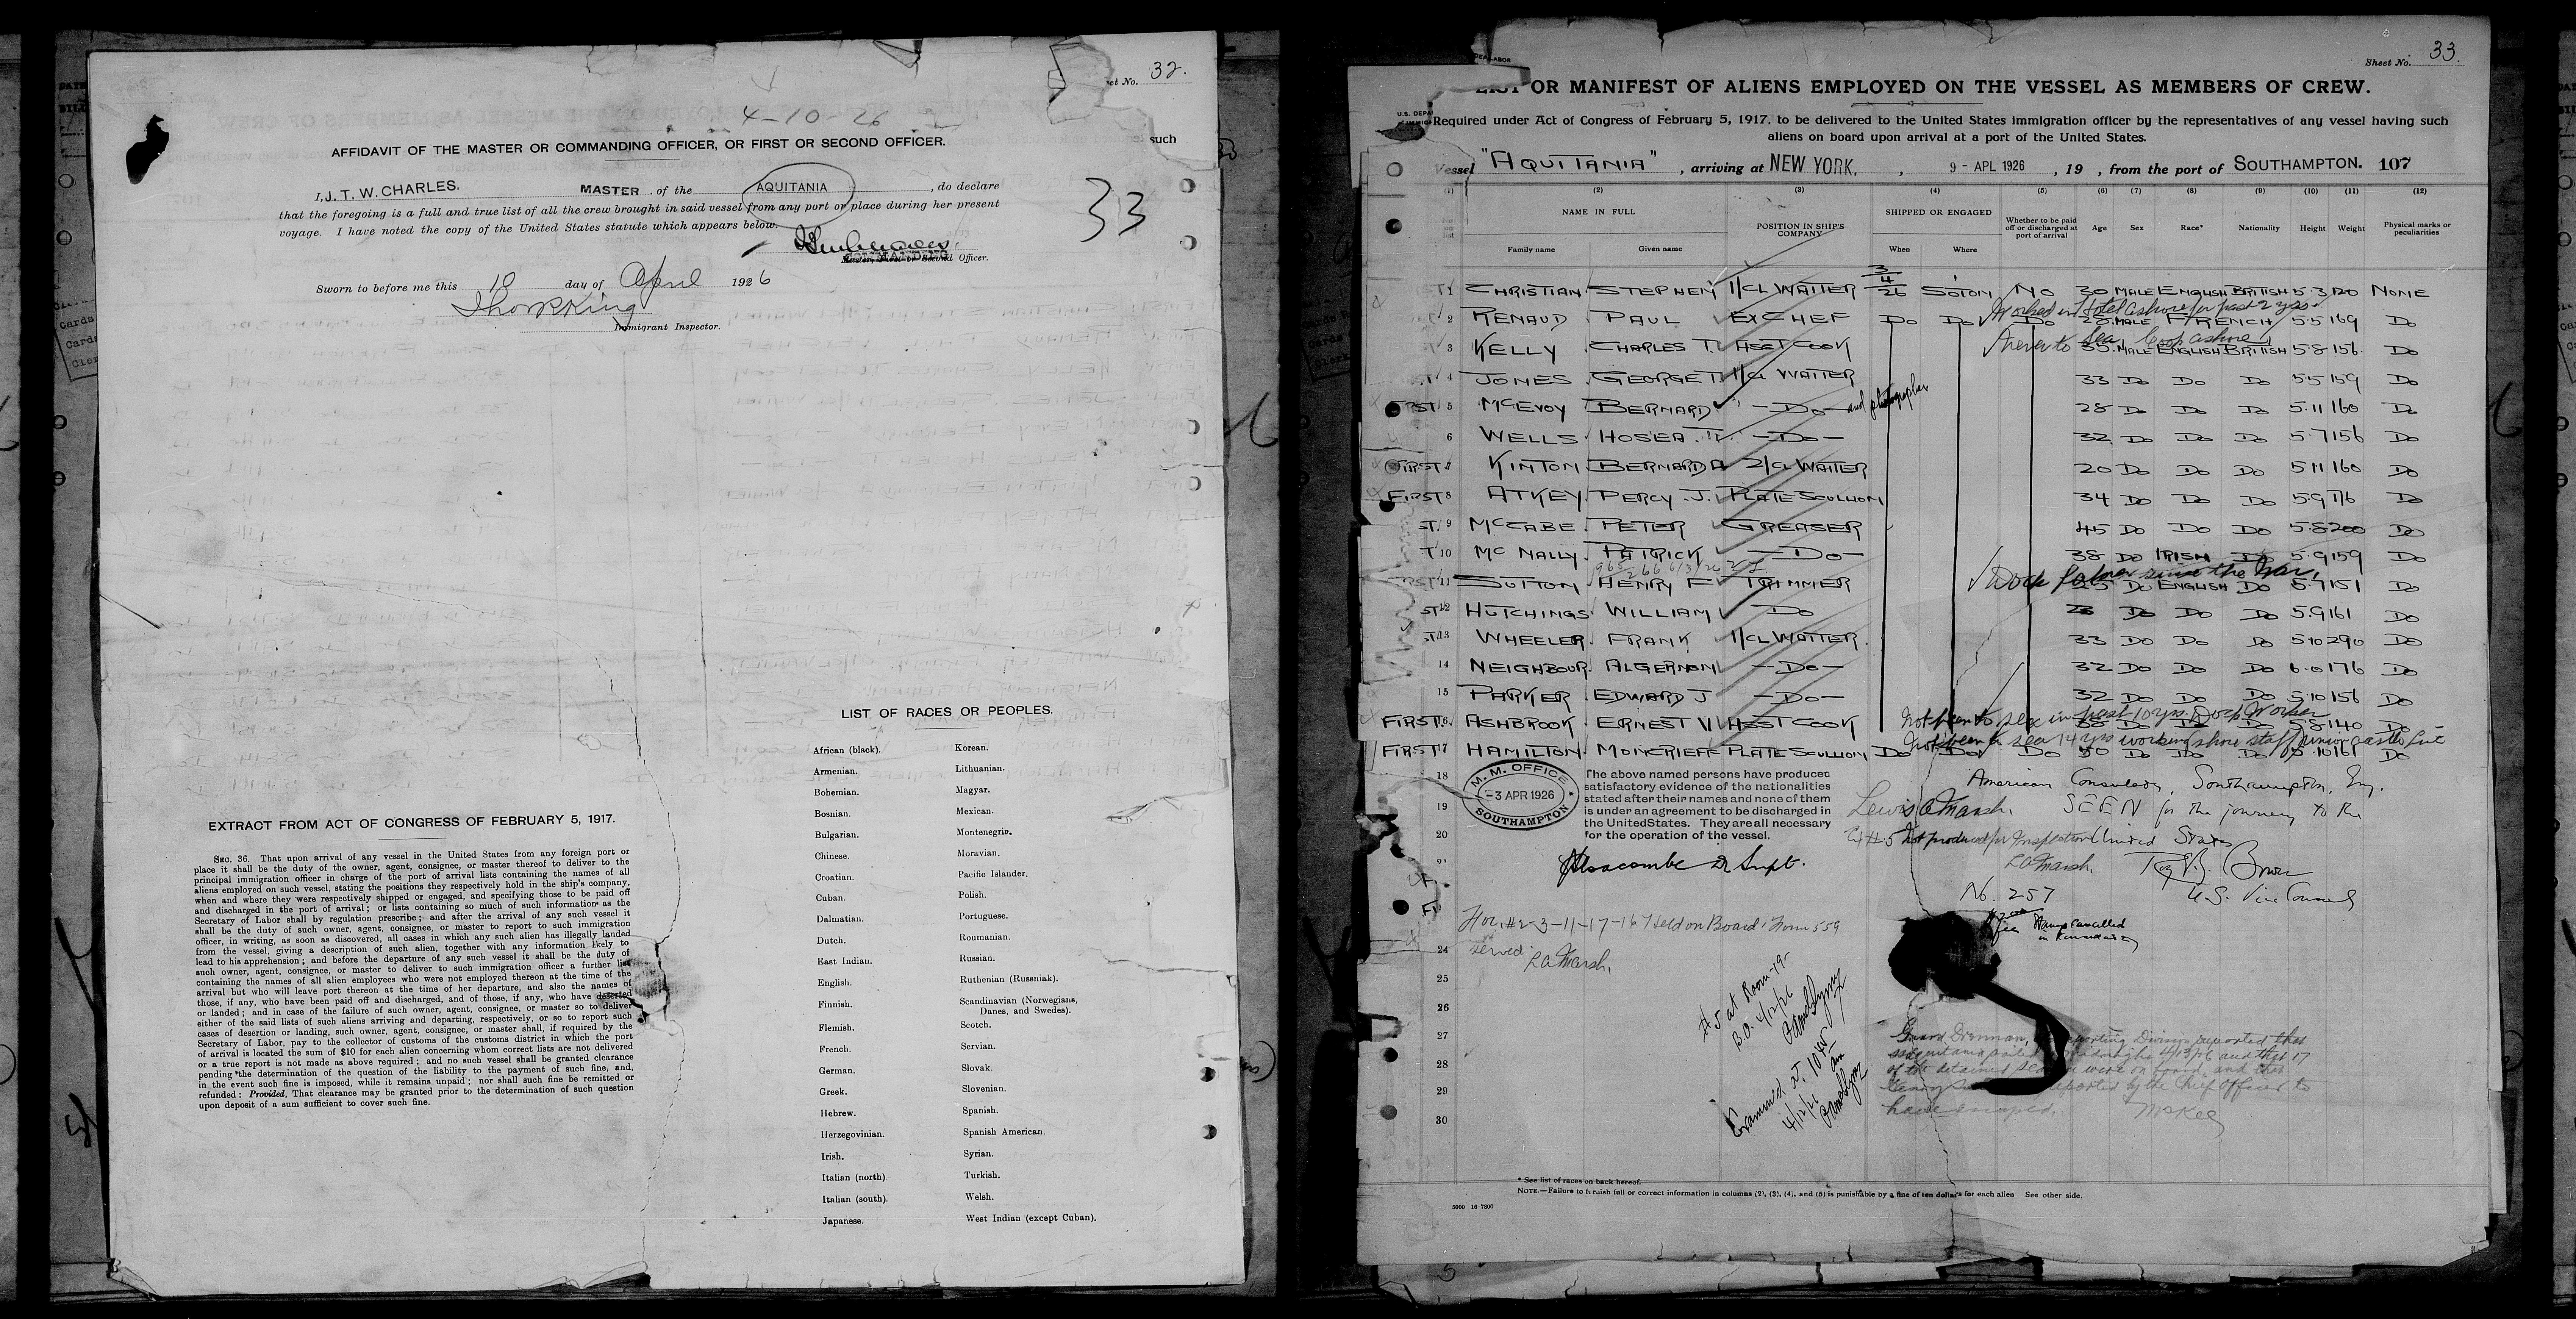 et No. 32.
4-10-26
such
AFFIDAVIT OF THE MASTER OR COMMANDING OFFICER, OR FIRST OR SECOND OFFICER.
I, J. T. W. CHARLES. MASTER of the AQUITANIA, do declare
that the foregoing is a full and true list of all the crew brought in said vessel from any port or place during her present
voyage. I have noted the copy of the United States statute which appears below.
33
Officer.
Sworn to before me this 10 day of April 1926
Immigrant Inspector.
LIST OF RACES OR PEOPLES.
African (black). Korean.
Armenian. Lithuanian.
Bohemian. Magyar.
Bosnian. Mexican.
Bulgarian. Montenegrin.
Chinese. Moravian.
Croatian. Pacific Islander.
Cuban. Polish.
Dalmatian. Portuguese.
Dutch. Roumanian.
East Indian. Russian.
English. Ruthenian (Russniak).
Finnish. Scandinavian (Norwegians,
Danes, and Swedes).
Flemish. Scotch.
French. Servian.
German. Slovak.
Greek. Slovenian.
Hebrew. Spanish.
Herzegovinian. Spanish American.
Irish. Syrian.
Italian (north). Turkish.
Italian (south). Welsh.
Japanese. West Indian (except Cuban).
EXTRACT FROM ACT OF CONGRESS OF FEBRUARY 5, 1917.
SEC. 36. That upon arrival of any vessel in the United States from any foreign port or
place it shall be the duty of the owner, agent, consignee, or master thereof to deliver to the
principal immigration officer in charge of the port of arrival lists containing the names of all
aliens employed on such vessel, stating the positions they respectively hold in the ship's company,
when and where they were respectively shipped or engaged, and specifying those to be paid off
and discharged in the port of arrival; or lists containing so much of such information as the
Secretary of Labor shall by regulation prescribe; and after the arrival of any such vessel it
shall be the duty of such owner, agent, consignee, or master to report to such immigration
officer, in writing, as soon as discovered, all cases in which any such alien has illegally landed
from the vessel, giving a description of such alien, together with any information likely to
lead to his apprehension; and before the departure of any such vessel it shall be the duty of
such owner, agent, consignee, or master to deliver to such immigration officer a further list
containing the names of all alien employees who were not employed thereon at the time of the
arrival but who will leave port thereon at the time of her departure, and also the names of
those, if any, who have been paid off and discharged, and of those, if any, who have deserted
or landed; and in case of the failure of such owner, agent, consignee, or master so to deliver
either of the said lists of such aliens arriving and departing, respectively, or so to report such
cases of desertion or landing, such owner, agent, consignee, or master shall, if required by the
Secretary of Labor, pay to the collector of customs of the customs district in which the port
of arrival is located the sum of $10 for each alien concerning whom correct lists are not delivered
or a true report is not made as above required; and no such vessel shall be granted clearance
pending the determination of the question of the liability to the payment of such fine, and,
in the event such fine is imposed, while it remains unpaid; nor shall such fine be remitted or
refunded: Provided, That clearance may be granted prior to the determination of such question
upon deposit of a sum sufficient to cover such fine.
Sheet No. 33.
LIST OR MANIFEST OF ALIENS EMPLOYED ON THE VESSEL AS MEMBERS OF CREW.
U.S. DEPA
Required under Act of Congress of February 5, 1917, to be delivered to the United States immigration officer by the representatives of any vessel having such
aliens on board upon arrival at a port of the United States.
Vessel "AQUITANIA", arriving at NEW YORK, 9 - APL 1926, 19 , from the port of SOUTHAMPTON. 107
(1) (2) (3) (4) (5) (6) (7) (8) (9) (10) (11) (12)
NAME IN FULL POSITION IN SHIP'S COMPANY SHIPPED OR ENGAGED Whether to be paid off or discharged at port of arrival Age Sex Race* Nationality Height Weight Physical marks or peculiarities
Family name Given name When Where
1 CHRISTIAN STEPHEN 1/CL WAITER 3/4/26 SOTON NO 30 MALE ENGLISH BRITISH 5·3 120 NONE
Worked in Hotel ashore for past 2 yrs
2 RENAUD PAUL EX CHEF DO DO DO 28 MALE FRENCH 5·5 169 DO
3 KELLY CHARLES T. ASST COOK 35 MALE ENGLISH BRITISH 5·8 156 DO
4 JONES GEORGE T. 1/CL WAITER 33 DO DO DO 5·5 159 DO
FIRST 5 McEVOY BERNARD — DO — and photographer 28 DO DO DO 5·11 160 DO
6 WELLS HOSEA T. — DO — 32 DO DO DO 5·7 156 DO
FIRST 7 KINTON BERNARD A 2/CL WAITER 20 DO DO DO 5·11 160 DO
FIRST 8 ATKEY PERCY. J. PLATE SCULLION 34 DO DO DO 5·9 176 DO
ST 9 McCABE PETER GREASER 45 DO DO DO 5·8 200 DO
T 10 McNALLY PATRICK — DO — 38 DO IRISH DO 5·9 159 DO
RST 11 SUTTON HENRY F TRIMMER DO ENGLISH DO 5·7 151 DO
ST 12 HUTCHINGS WILLIAM DO DO DO DO 5·9 161 DO
ST 13 WHEELER FRANK 1/CL WAITER 33 DO DO DO 5·10 290 DO
14 NEIGHBOUR ALGERNON — DO — 32 DO DO DO 6·0 176 DO
15 PARKER EDWARD J — DO — 32 DO DO DO 5·10 156 DO
Not been to sea in past 10 yrs. Dock Worker
FIRST 16 ASHBROOK ERNEST W ASST COOK 38 DO DO DO 5·8 140 DO
FIRST 17 HAMILTON MONCRIEFF PLATE SCULLION DO DO DO 50 DO DO DO 5·10 161 DO
18
19
20
M. M. OFFICE
-3 APR 1926
SOUTHAMPTON
The above named persons have produced
satisfactory evidence of the nationalities
stated after their names and none of them
is under an agreement to be discharged in
the United States. They are all necessary
for the operation of the vessel.
American Consulate, Southampton, Eng.
SEEN for the journey to the
United States
Lewis A Marsh.
#5 Not produced for Inspection
L A Marsh.
U.S. Vice Consul
No. 257
Stamp cancelled
For. #2-3-11-17-16 Held on Board. Form 559
served
L A Marsh.
24
25
26
27
28
29
30
#5 at Room-19-
B.O. 4/12/26
Examined at 10 45 am
4/12/26
McKee
* See list of races on back hereof.
NOTE.—Failure to furnish full or correct information in columns (2), (3), (4), and (5) is punishable by a fine of ten dollars for each alien See other side.
5000 16-7800